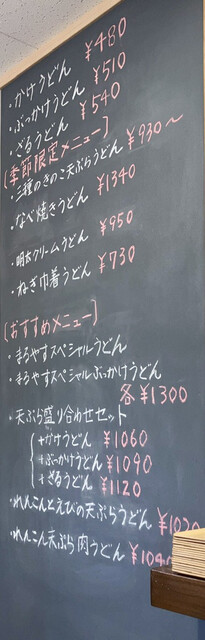 ・かけうどん ¥480
・ぶっかけうどん ¥510
・ざるうどん ¥540
[季節限定メニュー]
・三種のきのこ天ぷらうどん ¥930〜
・なべ焼きうどん ¥1340
・明太クリームうどん ¥950
・ねぎ巾着うどん ¥730
[おすすめメニュー]
・まるやすスペシャルうどん
・まるやすスペシャルぶっかけうどん
各 ¥1300
・天ぷら盛り合わせセット
+かけうどん ¥1060
+ぶっかけうどん ¥1090
+ざるうどん ¥1120
・れんこんとえびの天ぷらうどん
・れんこん天ぷら肉うどん